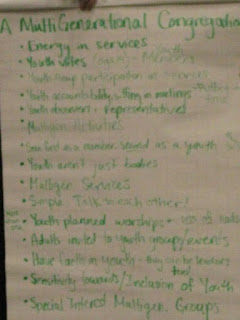 A MultiGenerational Congregation
• Energy in services
Youth
• Youth votes (again) - Members
• Youth group participation in services
• Youth accountability, sitting in meetings
time
• Youth observers + representatives
• Multigen Activities
as a youth
• Youth aren't just bodies
• Multigen Services
• Simple Talk to each other!
• Youth planned worships
• Adults invited to youth group/events
• Have Faith in youth - they can be leaders too!
• Sensitivity towards/Inclusion of Youth
• Special Interest Multigen. Groups